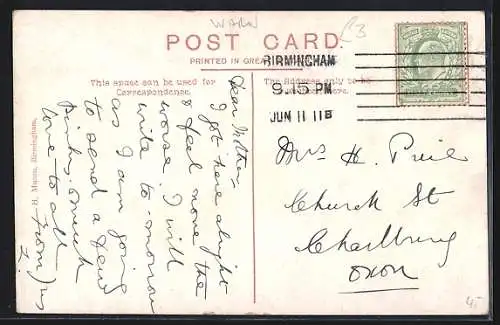 WARW
£3
POST CARD.
PRINTED IN GREAT
BIRMINGHAM
9.15 PM
JUN 11 11
This space can be used for
Correspondence.
The Address only to be
Dear Mother
I got here alright
& feel none the
worse. I will
write to-morrow
as I am going
to send a few
things. much
love to all
from
H. Mason, Birmingham.
Mrs H.
Church St
Charlbury
Oxon